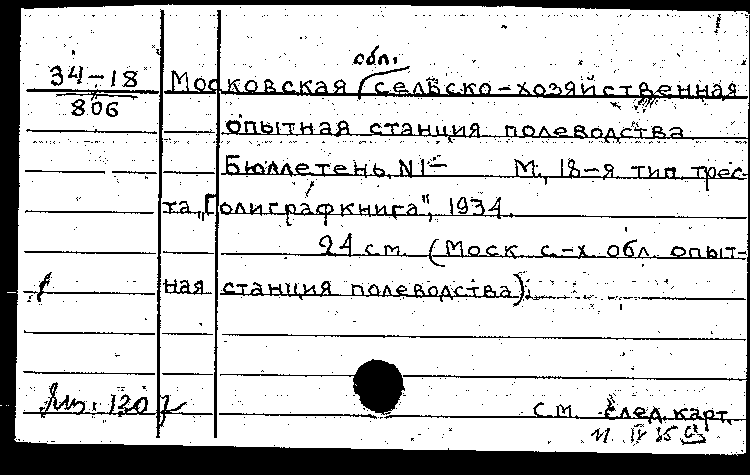 обл.
34-18 Московская сельско-хозяйственная
806
опытная станция полеводства
Бюллетень N1- М., 18-я тип. трес-
та „Полиграфкнига“, 1934.
24 см. (Моск. с.-х. обл. опыт-
ная станция полеводства).
130
см. след. карт.